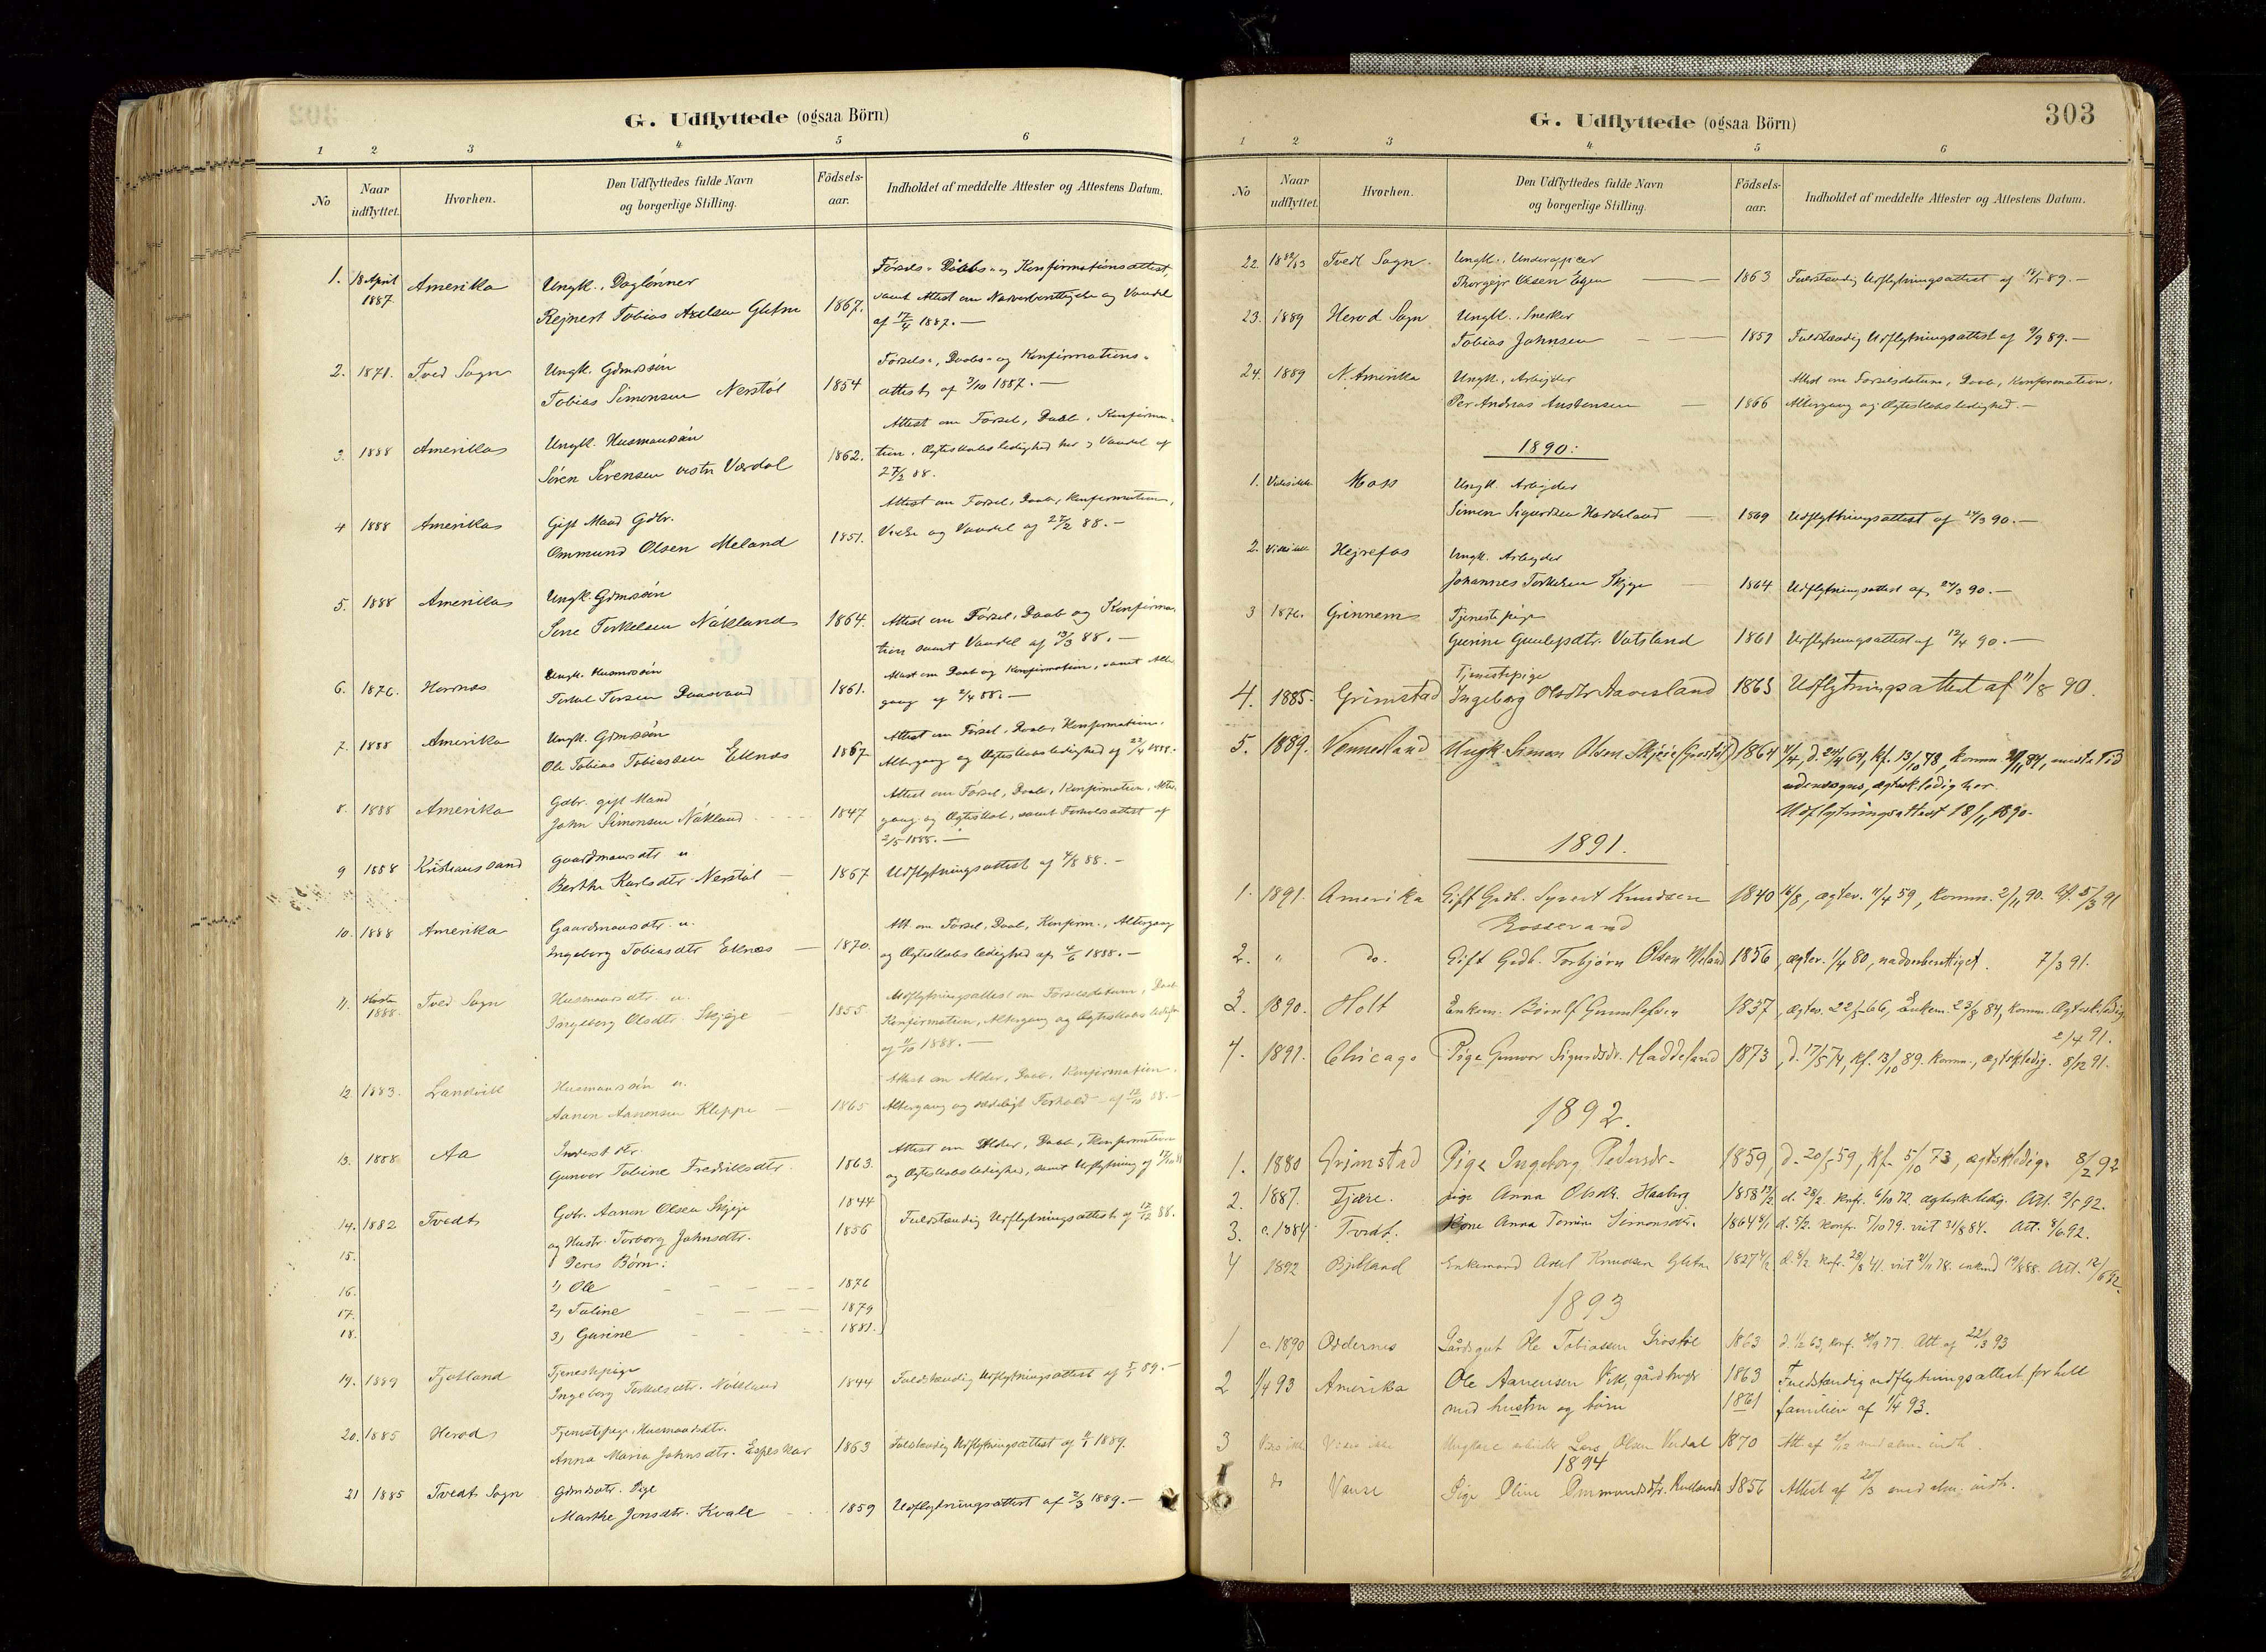 G. Udflyttede (ogsaa Börn)
1 2 3 4 5 6
No
Naar udflyttet.
Hvorhen.
Den Udflyttedes fulde Navn og borgerlige Stilling.
Födsels-aar.
Indholdet af meddelte Attester og Attestens Datum.
1. 18 April 1887 Amerika Ungk., Daglønner
Rejnert Tobias Axelsen 1867. Fødsels- Daabs- og Konfirmationsattest,
samt Attest om og Vandel
af 1887. —
2. 1871. Tved Sogn Ungk. Gdmssøn
Tobias Simonsen Nerstøl 1854 Fødsels-, Daabs- og Konfirmations-
attest af 3/10 1887. —
3. 1888 Amerika Ungk. Husmanssøn
Søren Sørensen 1862. Attest om Fødsel, Daab, Konfirma-
tion, Ægteskabsledighed her og Vandel af
27/2 88.
4 1888 Amerika Gift Mand Gdbr.
Ommund Olsen Meland 1851. Attest om Fødsel, Daab, Konfirmation,
Vielse og Vandel af 27/2 88. —
5. 1888 Amerika Ungk. Gdmssøn
Terkelsen Nákland 1864. Attest om Fødsel, Daab og Konfirma-
tion samt Vandel af 13/3 88. —
6. 1876. Ungk. Husmssøn
Terkel 1861. Attest om Daab og Konfirmation, samt Alter-
gang af 2/4 88. —
7. 1888 Amerika Ungk. Gdmssøn
Ole Tobias Tobiassen Eknæs 1867 Attest om Fødsel, Daab, Konfirmation,
Altergang og Ægteskabsledighed af 23/4 1888.
8. 1888 Amerika Gdbr. gift Mand
John Simonsen Nákland 1847 Attest om Fødsel, Daab, Konfirmation, Alter-
gang og Ægteskab, samt attest af
2/5 1888. —
9 1888 Kristianssand Gaardmansdtr. u
Berthe Karlsdtr. Nerstøl 1867 Udflytningsattest af 4/8 88. —
10. 1888 Amerika Gaardmansdtr. u.
Ingeborg Tobiasdtr. Eknæs 1870. Att. om Fødsel, Daab, Konfirm., Altergang
og Ægteskabsledighed af 4/6 1888. —
11. Høsten 1888. Tved Sogn Husmansdtr. u.
Ingeborg Olsdtr. Skjeje 1855. Udflytningsattest om Fødselsdatum, Daab
Konfirmation, Altergang og Ægteskabsledighed
af 1888. —
12 1883. Landvik Husmanssøn u.
Aanon Aanonsen Kleppe 1865 Attest om Alder, Daab, Konfirmation,
Altergang og sædeligt Forhold af 88. —
13. 1888 Aa
Gunvor Tobine Fredriksdtr. 1863. Attest om Alder, Daab, Konfirmation
og Ægteskabsledighed, samt Udflytning af
14. 1882 Tvedt Gdbr. Aanon Olsen Skjeje 1844 Fuldstændig Udflytningsattest af 88.
15. og Hustr. Torborg Johnsdtr. 1856
Deres Børn:
16. 1) Ole 1876
17. 2) Taline 1879
18. 3) Gurine 1881.
19. 1889 Fjotland Tjenestepige
Ingeborg Terkelsdtr. Nákland 1844 Fuldstændig Udflytningsattest af 89. —
20. 1885 Herod Tjenestepige, Husmandsdtr.
Anna Maria Johnsdtr. Espeskar 1863 Fuldstændig Udflytningsattest af 1889.
21 1885 Tvedt Sogn Gdmsdtr. Pige
Marthe Jensdtr. Kvale 1859 Udflytningsattest af 2/3 1889. —
303
G. Udflyttede (ogsaa Börn)
1 2 3 4 5 6
No
Naar udflyttet.
Hvorhen.
Den Udflyttedes fulde Navn og borgerlige Stilling.
Födsels-aar.
Indholdet af meddelte Attester og Attestens Datum.
22. Tvedt Sogn. Ungk., Underofficer
Thorgejr Olsen 1863 Fuldstændig Udflytningsattest af 89. —
23. 1889 Herod Sogn Ungk. Snedker
Tobias Johnsen 1859 Fuldstændig Udflytningsattest af 9/9 89. —
24. 1889 N. Amerika Ungk., Arbejder
Per Andreas Austensen 1866 Attest om Fødselsdatum, Daab, Konfirmation,
Altergang og Ægteskabsledighed. —
1890:
1. Vides ikke Moss Ungk. Arbejder
Simon Sigurdsen Haddeland 1869 Udflytningsattest af 24/3 90. —
2. Vides ikke Hejrefos Ungk. Arbejder
Johannes Terkelsen Skjeje 1864 Udflytningsattest af 24/3 90. —
3 1876. Grinnem Tjenestepige
Gurine Gunlefsdtr. Vatsland 1861 Udflytningsattest af 12/4 90. —
4. 1885. Grimstad Tjenestepige
Ingeborg Olsdtr. Aavesland 1863 Udflytningsattest af 11/8 90.
5. 1889. Vennesland Ungk. Simon Olsen Skjeie (Grostøl) 1864 d. 24/4 64, kf. 13/10 78, komm. 84, meste Tid
udensogns, ægteskledig her.
Udflytningsattest 18/11 1890.
1891.
1. 1891. Amerika Gift Grdb. Syvert Knudsen 1840 16/8, ægtev. 11/4 59, komm. 2/11 90. Af. 5/3 91
Rosseland
2. " do. Gift Grdb. Torbjörn Olsen Meland 1856, ægtev. 1/4 80, nadverberettiget. 7/3 91.
3. 1890. Holt Enkem. Gunlefsen 1837, ægtev. 66, Enkem. 23/8 84, komm. Ægteskledig
2/4 91.
4. 1891. Chicago Pige Gunvor Sigurdsdr. Haddeland 1873, d. 17/5 74, kf. 13/10 89. komm., ægtskledig. 8/12 91.
1892.
1. 1880 Grimstad Pige Ingeborg Pedersdr. 1859, d. 20/5 59, kf. 5/10 73, ægtskledig. 8/2 92
2. 1887. Fjære. pige Anna Olsdtr. Haaberg 1858 13/2 d. 28/2. konfr. 6/10 72 ægteskledig. Att. 2/5 92.
3. c. 1884 Tvedt. Kone Anna Tomine Simonsdtr. 1864 d. 5/2. konfr. 5/10 79. viet 31/8 84. Att. 8/6 92.
4 1892 Bjelland Enkemand Axel Knudsen 1827 4/2 d. 8/2 konfr. 29/8 41. viet 21/11 78. enkmd 19/8 88. Att. 12/6 92.
1893
1 c. 1890 Oddernes Gårdsgut Ole Tobiassen Grostøl 1863 d. 1/2 63, konf. 30/9 77. Att af 22/3 93
2 1/4 93 Amerika Ole Aanensen Vik, gårdbrugr 1863 Fuldstændig udflytningsattest for hele
med hustru og børn 1861 familien af 1/4 93.
3 Vides ikke Vides ikke Ungkarl arbeider Lars Olsen Verdal 1870 Att af 2/12 med alm. indh.
1894
1 do Vanse Pige Oline Ommundsdtr. 1856 Attest af 20/3 med alm. indh.